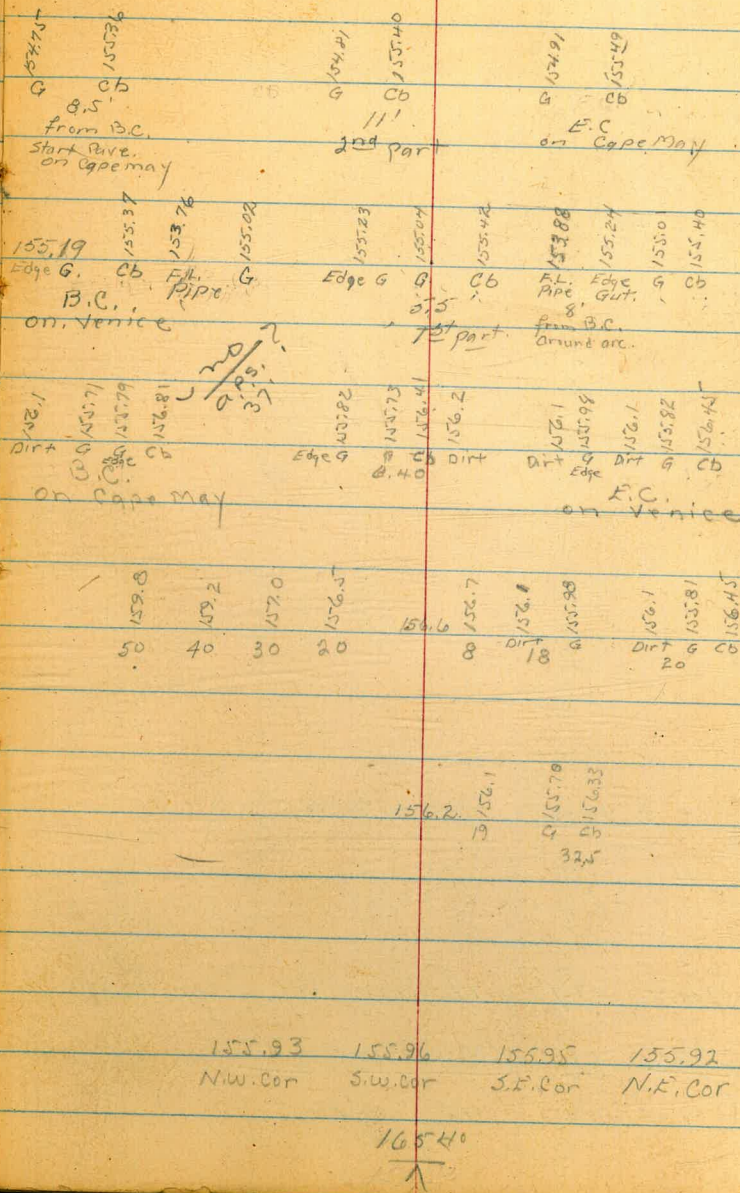 154.75 155.36 154.81 155.40 154.91 155.49
G Cb G Cb G Cb
8.5' 11' E.C
from B.C. 2nd part on Cape May
Start Pave.
on Cape may
155.19 155.37 153.76 155.02 155.23 155.04 155.42 153.88 155.24 155.01 155.40
Edge G. Cb F.L. G Edge G G Cb F.L. Edge G Cb
Pipe Pipe Gut.
B.C. 5.5 8'
on Venice 1st part. from B.C.
around arc.
no ?
156.1 155.71 155.79 156.81 155.82 155.73 156.41 156.2 156.1 155.98 156.1 155.82 156.45
Dirt G G Cb Edge G G Cb Dirt Dirt G Dirt G Cb
Edge Edge
B.C. 8.40 E.C.
on Cape May on Venice
159.8 159.2 157.0 156.5 156.6 156.7 156.1 155.98 156.1 155.81 156.45
50 40 30 20 8 Dirt G Dirt G Cb
18 20
156.2 156.1 155.78 156.33
19 G Cb
32.5
155.93 155.96 155.95 155.92
N.W. Cor S.W. Cor S.E. Cor N.E. Cor
1654°